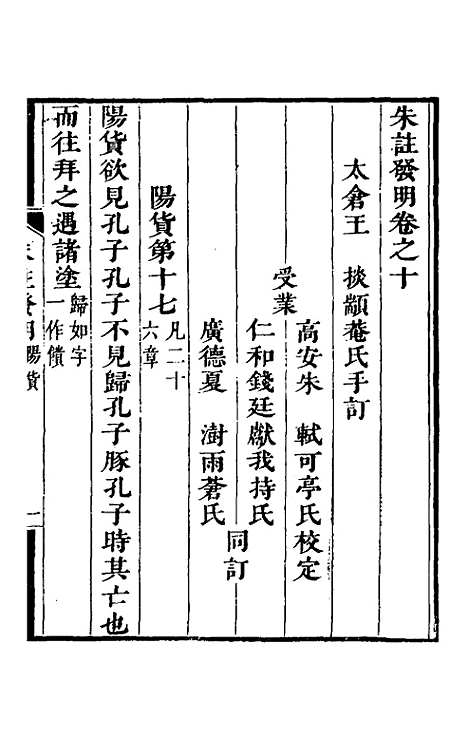 朱註發明卷之十
太倉王 掞顓菴氏手訂
受業
高安朱 軾可亭氏校定
仁和錢廷獻我持氏
廣德夏 澍雨蒼氏
同訂
陽貨第十七
凡二十
六章
陽貨欲見孔子孔子不見歸孔子豚孔子時其亡也
而往拜之遇諸塗
歸如字
一作饋
朱註發明
陽貨
一